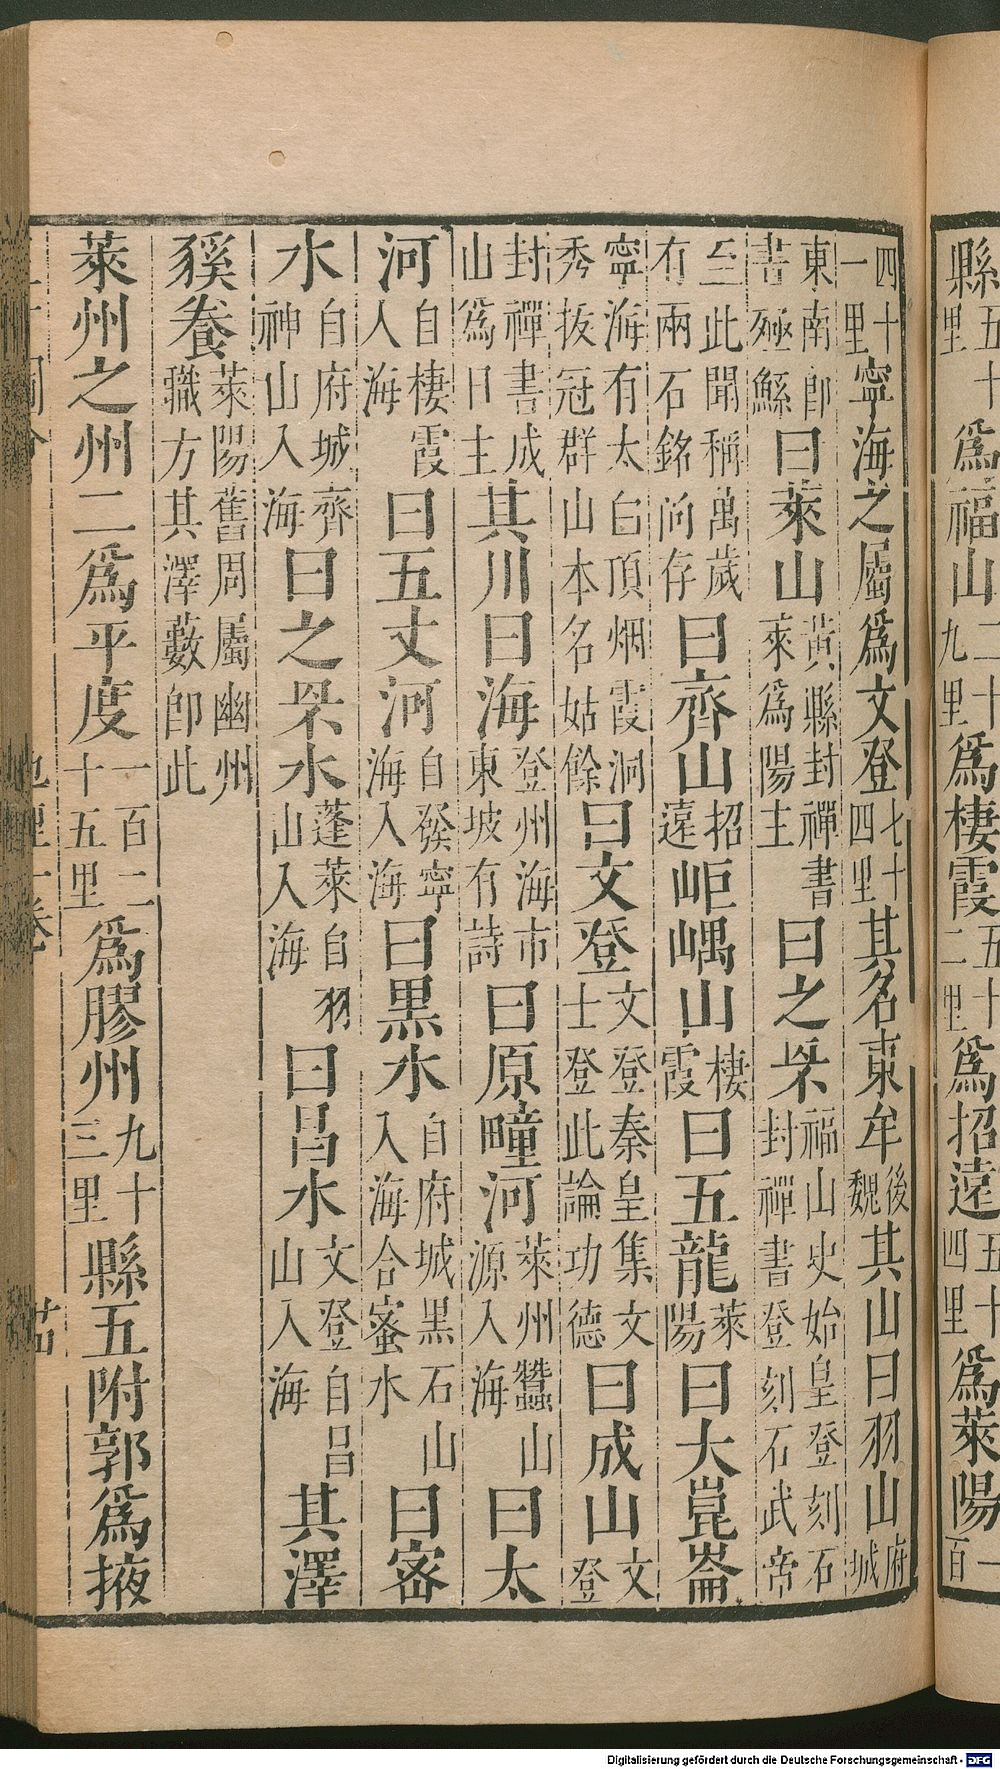 縣五十里爲福山二十九里爲棲霞五十二里爲招遠五十四里爲萊陽一百
四十一里寧海之屬爲文登七十四里其名東牟後魏其山曰羽山府城
東南卽書殛鯀曰萊山黃縣封禪書萊爲陽主曰之罘福山史始皇登刻石封禪書登刻石武帝
至此聞稱萬歲有兩石銘尚存曰齊山招遠岠嵎山棲霞曰五龍萊陽曰大崑崙
寧海有太白頂烟霞洞秀抜冠群山本名姑餘曰文登文登秦皇集文士登此論功德曰成山文登
封禪書成山爲日主其川曰海登州海市東坡有詩曰原疃河萊州蠶山源入海曰太
河自棲霞入海曰五丈河自發寧海入海曰黒水自府城黒石山入海合蜜水曰密
水自府城齊神山入海曰之罘水蓬萊自羽山入海曰昌水文登自昌山入海其澤
豯養萊陽舊周屬幽州職方其澤藪卽此
萊州之州二爲平度一百二十五里爲膠州九十三里縣五附郭爲掖
Digitalisierung gefördert durch die Deutsche Forschungsgemeinschaft - DFG